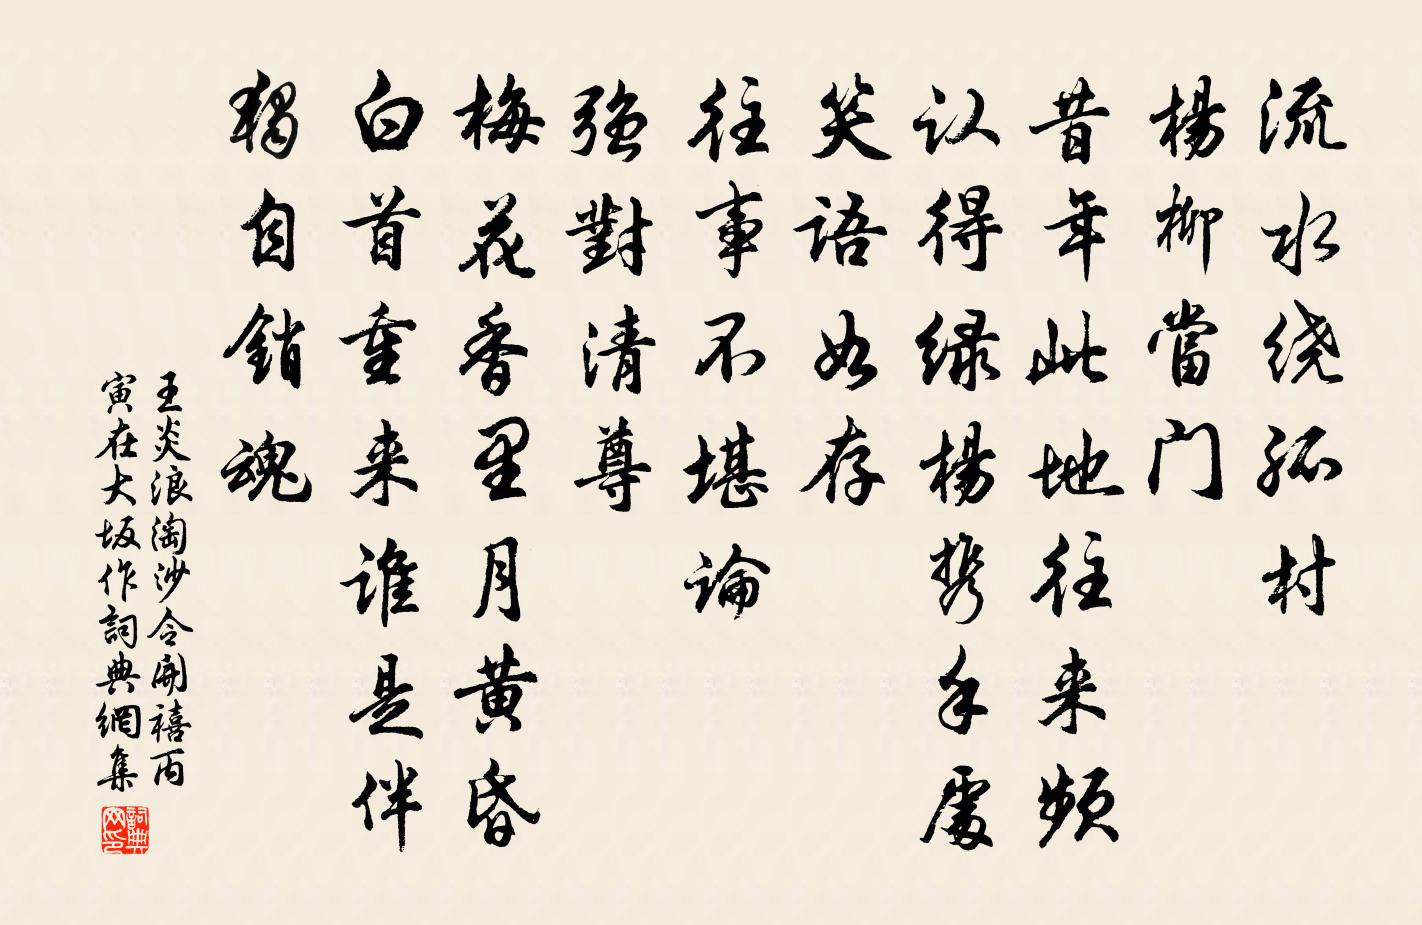 流水绕孤村
楊柳當门
昔年此地往来频
认得绿楊携手處
笑語如存
往事不堪論
强對清尊
梅花香里月黄昏
白首重来谁是伴
獨自銷魂
王炎浪淘沙令開禧丙
寅在大坂作詞典網集
詞典
网印